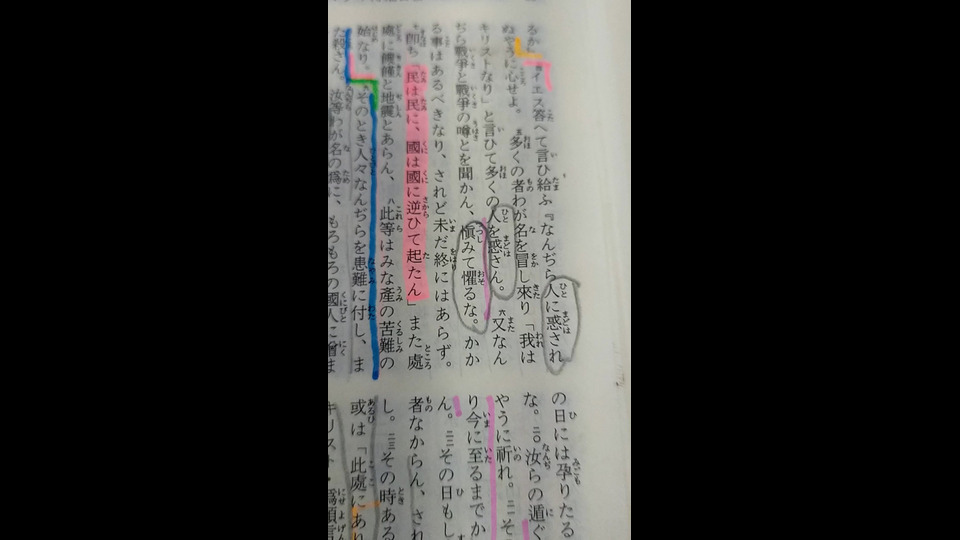 るか』
四イエス答へて言ひ給ふ『なんぢら人に惑され
ぬやうに心せよ。五多くの者わが名を冒し來り「我は
キリストなり」と言ひて多くの人を惑さん。六又なん
ぢら戰爭と戰爭の噂とを聞かん、愼みて懼るな。かか
る事はあるべきなり、されど未だ終にはあらず。
七即ち「民は民に、國は國に逆ひて起たん」また處
處に饑饉と地震とあらん、八此等はみな產の苦難の
始なり。九そのとき人々なんぢらを患難に付し、ま
た殺さん。汝等わが名の爲に、もろもろの國人に憎ま
の日には孕りたる
な。二〇汝らの遁ぐ
やうに祈れ。二一そ
り今に至るまでか
ん。二二その日もし
者なからん、され
し。二三その時ある
或は「此處にあり
キリスト・